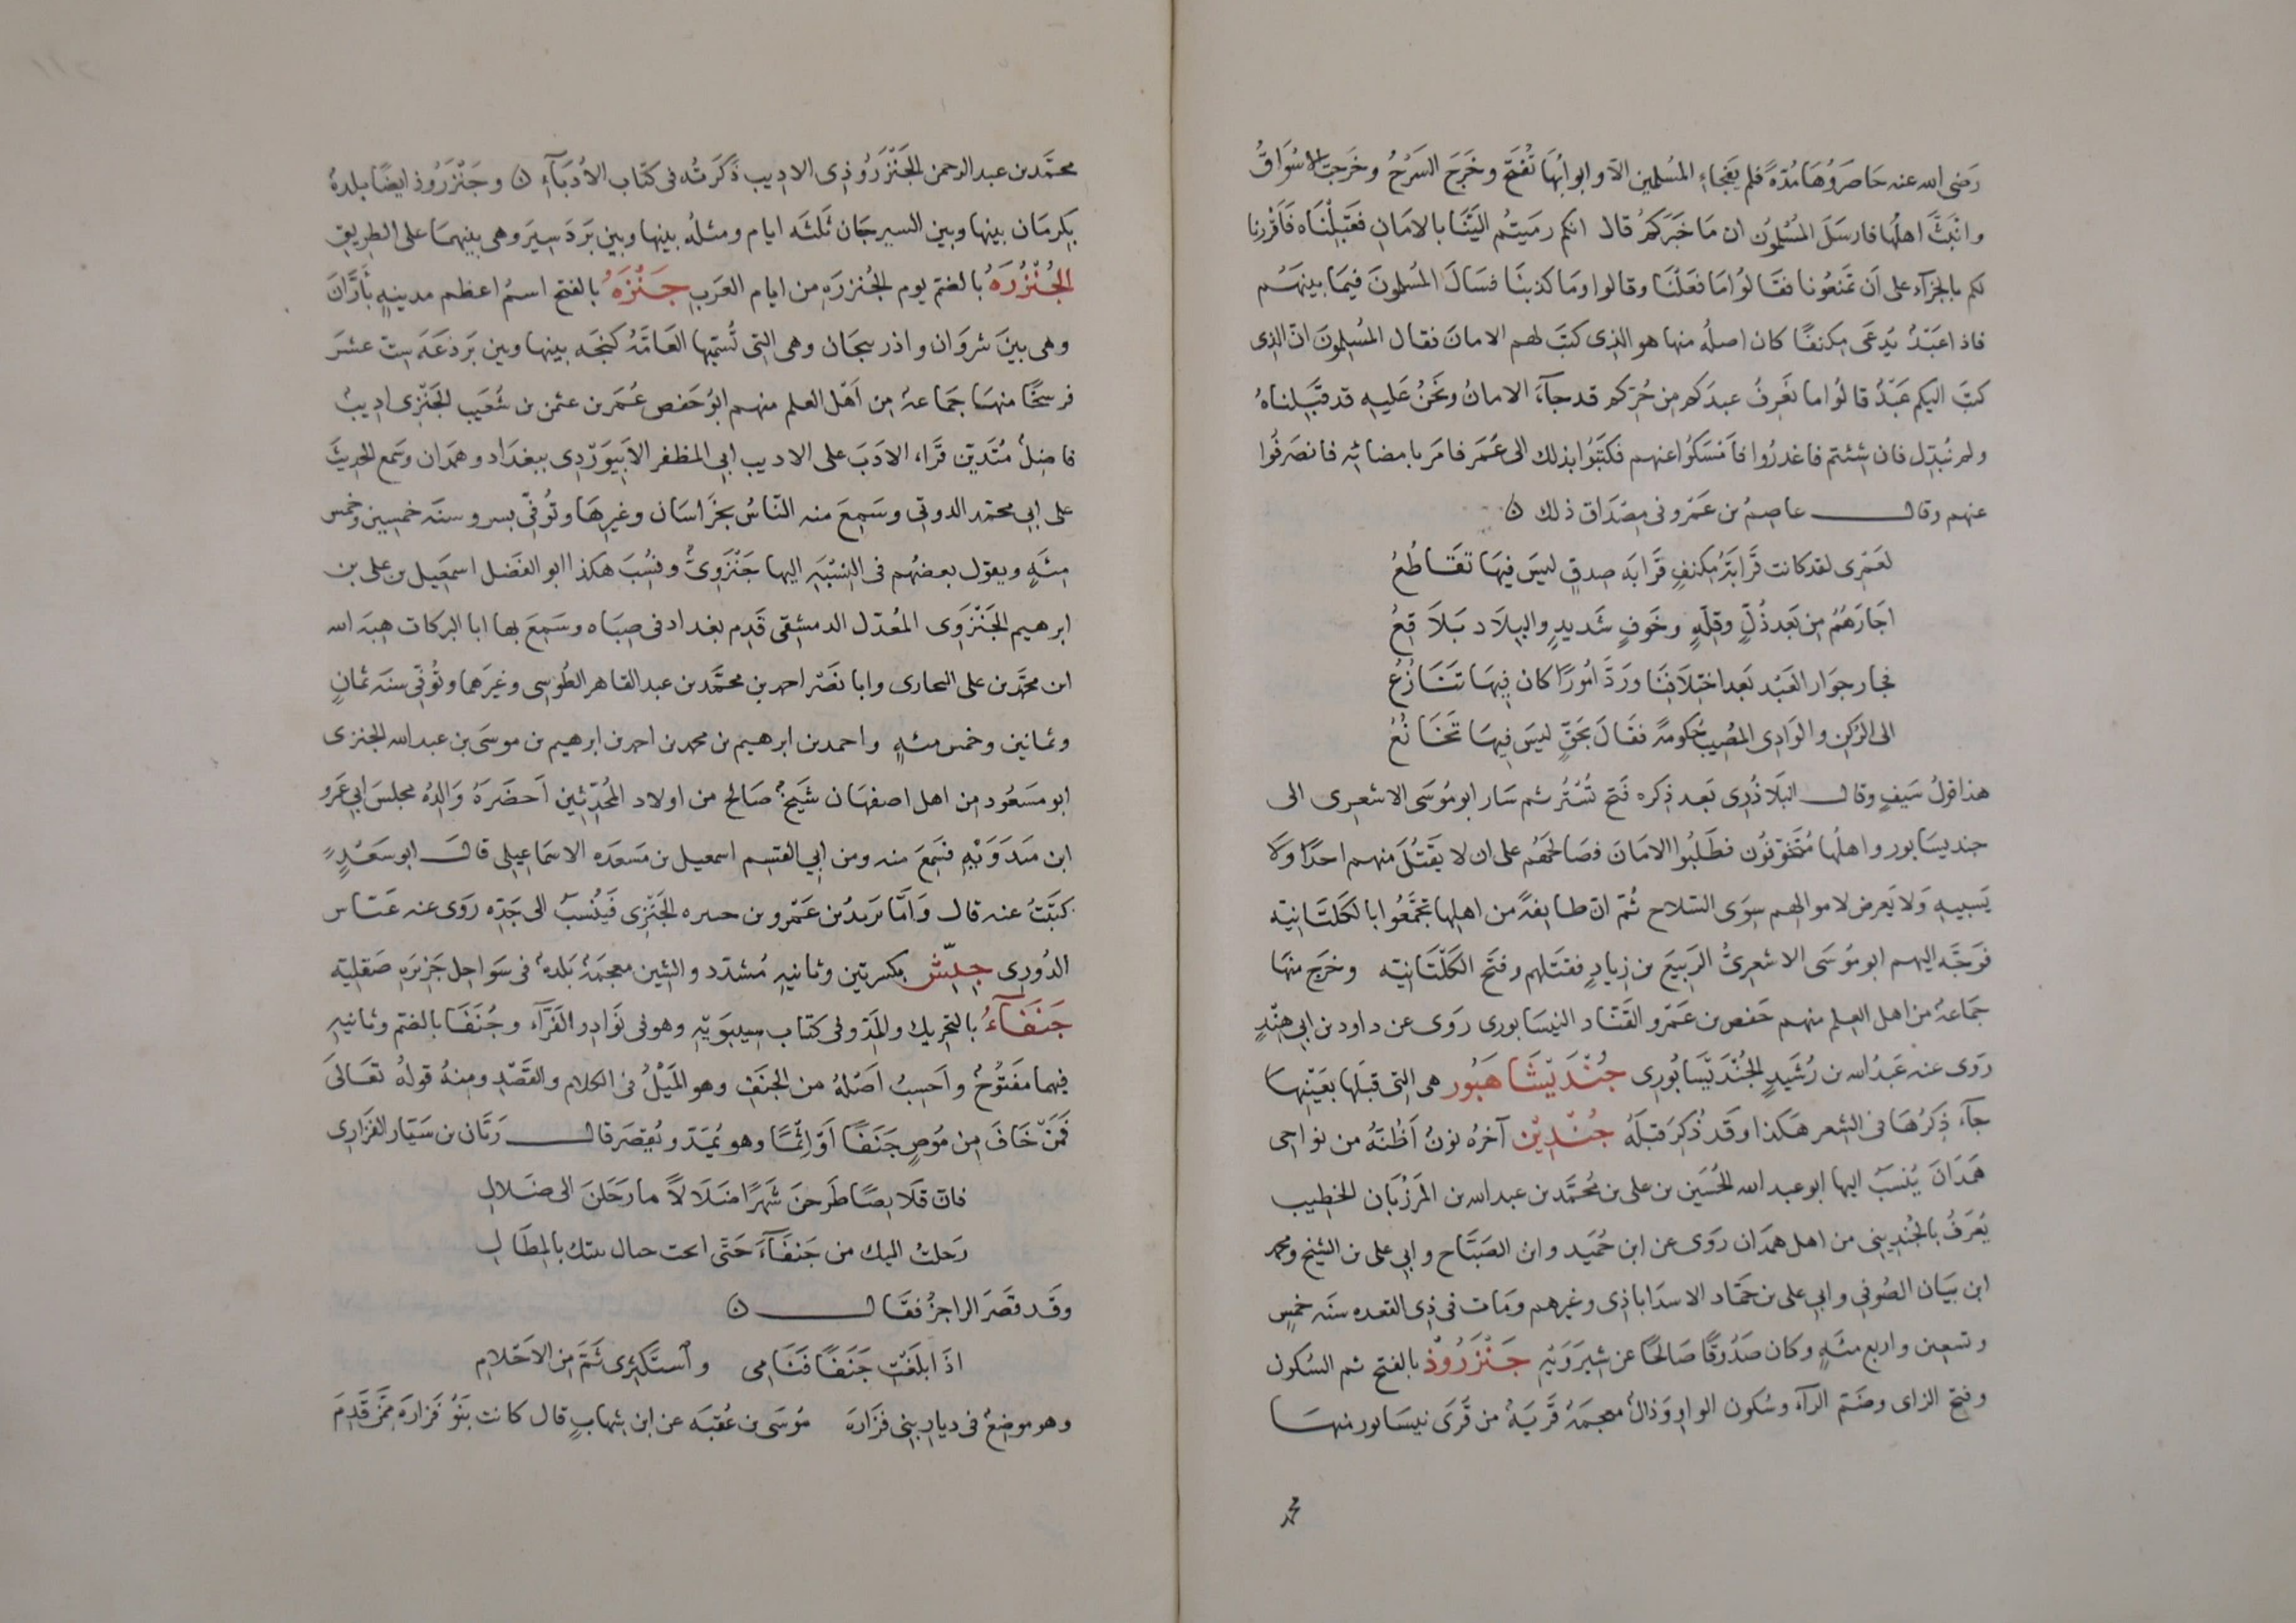 رَضى الله عنه حَاصَرُوهَا مُدَّةً فلم يَفجاء المُسْلمين الّا وابوابُهَا تُفتَح وخَرَجَ السَرْحُ وخَرجت الاسْوَاقُ
وانْبَثَّ اهلُها فارسَلَ المُسْلمُون ان مَا خَبَرَكُم قال انكم رمَيتُم الَيْنَا بالامَانِ فقَبِلْنَاه فَاَقْرَرنا
لكم بالجزآء على اَن تمنَعُونا فقَالُوا مَا فعَلْنَا وقالوا ومَا كذبنَا فسَالَ المُسلمونَ فيمَا بينهَم
فاذا عَبْدٌ يُدعَى مكنفًا كان اصلُه منها هو الذى كتبَ لهم الامانَ فقال المُسلمونَ انّ الذى
كتبَ اليكم عَبْدٌ قالُوا ما نَعرفُ عبدَكم من حُرّكم قد جآءَ الامانُ ونَحْنُ عَليه قد قَبِلناهُ
ولم نُبدّل فان شئتم فاغدرُوا فاَمْسَكُوا عنهم فكتَبُوا بذلك الى عُمَر فامَر بامضائه فانصَرفُوا
عنهم وقال عاصِمُ بن عَمْرو فى مِصْدَاق ذلك ن
لعَمْرى لقد كانت قَرَابَةُ مكنفٍ قَرَابَة صدقٍ ليسَ فيهَا تقَاطُعُ
اجَارَهُمُ من بَعد ذُلٍّ وقِلّةٍ وخَوفٍ شَديدٍ والبِلَاد بَلَاقِعُ
فجار جوَار العَبْد بَعد اخْتلَافِنَا ورَدَّ امُورًا كان فِيهَا تنَازُعُ
الى الركن والوَادِى المُصِيب حُكومَةً فقَالَ بحَقٍّ ليسَ فيهَا تخَانُعُ
هذا قولُ سَيفٍ وقال البَلَاذُرِى بَعد ذِكره فَتح تُسْتَر ثم سَار ابو مُوسَى الاشعرى الى
جنديسَابور واهلُها مُتَخَوّفُون فطَلَبُوا الامَانَ فصَالحَهُم على ان لا يقْتُلَ منهم احدًا ولا
يَسبيهِ وَلا يَعرض لاموالهم سِوَى السّلاح ثُمّ انّ طَايفةً من اهلِها تجمَّعُوا بالكَلتَانيّة
فوَجّه اليهم ابو مُوسَى الاشعرىُّ الرّبيعَ بن زِيادٍ فقتَلهم وفتح الكَلْتَانيّه وخرَج منهَا
جمَاعةٌ من اهل العلم منهم حَفص بن عَمْرو القَنّاد النيسَابورى رَوَى عن داود بن ابى هِنْدٍ
روَى عنه عَبْدُ الله بن رُشَيدٍ الجُنْدَيْسَابُورى جُنْدَيْشَاهَبُور هى التى قبلهَا بعَيْنِهَا
جآءَ ذِكرُهَا فى الشعر هَكذا وقَد ذُكرَ قبلَهُ جُنْدِيْن آخرُه نونٌ اَظُنّهُ من نواحى
هَمدَانَ يُنسَبُ اليها ابو عبد الله الحُسَين بن على بن مُحَمَّد بن عبد الله بن المَرْزُبَان الخطيب
يُعرَفُ بالجُندِينى من اهل همدَان روَى عن ابن حُمَيد وابن الصَبّاح وابى على بن الشيخ ومحمد
ابن بيَان الصُوفى وابى على بن حَمّاد الاسدَاباذى وغيرهم ومَات فى ذى القعده سنَه خمسٍ
وتسعين واربع مئَةٍ وكان صَدُوقًا صَالحًا عن شِيرَوَيْهِ جَنْزَرُوْذ بالفتح ثم السُكون
وفتح الزاى وضَمّ الرآء وسُكون الواو وَذالٌ معجمَةٌ قَرْيةٌ من قُرَى نيسَابور منهَا
محمَّد بن عبد الرحمن الجَنْزَرُوذِى الاديب ذكَرتُه فى كتاب الاُدَبَآءِ ن وجَنْزَرُوذ ايضًا بلدةٌ
بكرمَان بينها وبين السيرجَان ثَلثَة ايام ومثلُه بينها وبين بَرْدَسِيرَ وهى بينهمَا على الطريق
الجُنْزُرَةُ بالضم يوم الجُنزرَةِ من ايام العَربِ جَنْزَةُ بالفتح اسمُ اعظم مدينةٍ باَرّانَ
وهى بينَ شروَان واذربيجَان وهى التى تُسَمّيها العَامّةُ كَنجَه بينها وبين بَرذعَة ستّ عشرَ
فرسخًا منهَا جمَاعةٌ من اَهْل العلم منهم ابُو حَفص عُمَر بن عثمن بن شُعَيب الجَنْزِى اديبٌ
فاضلٌ مُتَديّن قرَاء الادَبَ على الاديب ابى المظفر الاَبِيوَرْدِى ببغدَاد وهمدَان وسَمع الحديثَ
على ابى محمّد الدونى وسَمِعَ منه النّاسُ بخُرَاسَان وغيرِهَا وتُوفّى بمرو سنَه خمسِين وخمس
مِئَةٍ ويقول بعضُهم فى النسْبَةِ اليها جَنْزَوِىٌّ ونسُبَ هكذا ابو الفَضل اسمعيل بن على بن
ابرهيم الجَنْزَوِى المعُدّل الدمشقى قَدِم بغداد فى صِبَاه وسَمِعَ بها ابا البركات هبَة الله
ابن محمَّد بن على البحارى وابا نَصْر احمد بن محمَّد بن عبد القاهر الطُوسِى وغيرَهما وتُوفّى سنَة ثمانٍ
وثمانين وخمس مئةٍ واحمد بن ابرهيم بن محمد بن احمد بن ابرهيم بن موسَى بن عبد الله الجنزى
ابو مسَعُود من اهل اصفهَان شَيخٌ صَالح من اولاد المُحدّثين اَحضَرَهُ وَالِدُه مجلسَ ابى عَمرو
ابن مَنْدَوَيْهِ فسَمعَ منه ومن ابى القسم اسمعيل بن مَسعَدَه الاسمَاعِيلى قال ابو سَعْدٍ
كتبَتُ عنه قال وَاَمّا يزيدُ بن عَمْرو بن جنزه الجَنْزى فَيُنسَبُ الى جَدّه روَى عنه عَبّاس
الدُورى جِنِّش بكسرتين وثانيهِ مُشدّد والشين معجمَةٌ بَلدةٌ فى سوَاحل جَزيرَة صَقليّة
جَنَفَآءُ بالتحريك والمَدّ وفى كتاب سِيبوَيْهِ وهو فى نوَادِر الفَرّآء وجُنَفَا بالضم وثانيهِ
فيهما مفتُوحٌ واَحسِبُ اَصْلهُ من الجنَفِ وهو المَيْلُ فى الكلام والقَصْدِ ومنهُ قولهُ تعَالىَ
فَمَنْ خَافَ مِن مُوصٍ جَنَفًا اَوْ اِثْمًا وهو يُمَدّ ويُقصَر قال زَبّان بن سَيّار الفزَارِى
فانّ قلَا بِصًا طَرحنَ شَهرًا ضَلَالًا مارَحَلنَ الى ضَلالِ
رَحلتُ اليك من جَنَفَآءَ حَتّى انحت حيال بيتك بالمطَالِ
وقَد قصَرَ الراجزُ فقَال ن
اذَا بلَغَتِ جَنَفًا فنَامى واَستَكثِرى ثَمَّ مِن الاَحْلامِ
وهو موضعٌ فى ديارِ بنى فزَارة مُوسَى بن عُقبَة عن ابن شِهابٍ قال كانت بَنُو فزارَة ممّن قَدِمَ